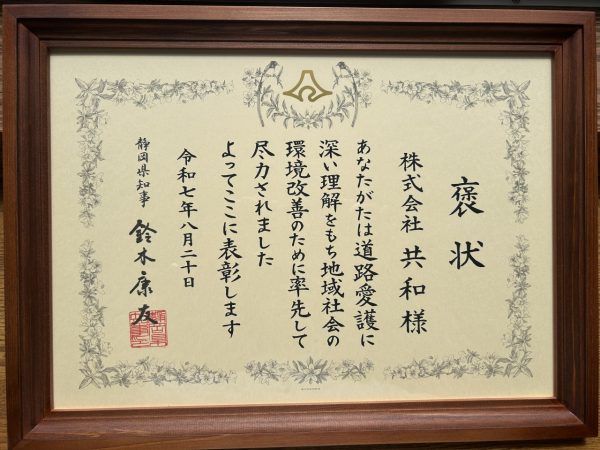 褒状
株式会社 共和様
あなたがたは道路愛護に
深い理解をもち地域社会の
環境改善のために率先して
尽力されました
よってここに表彰します
令和七年八月二十日
静岡県知事 鈴木康友